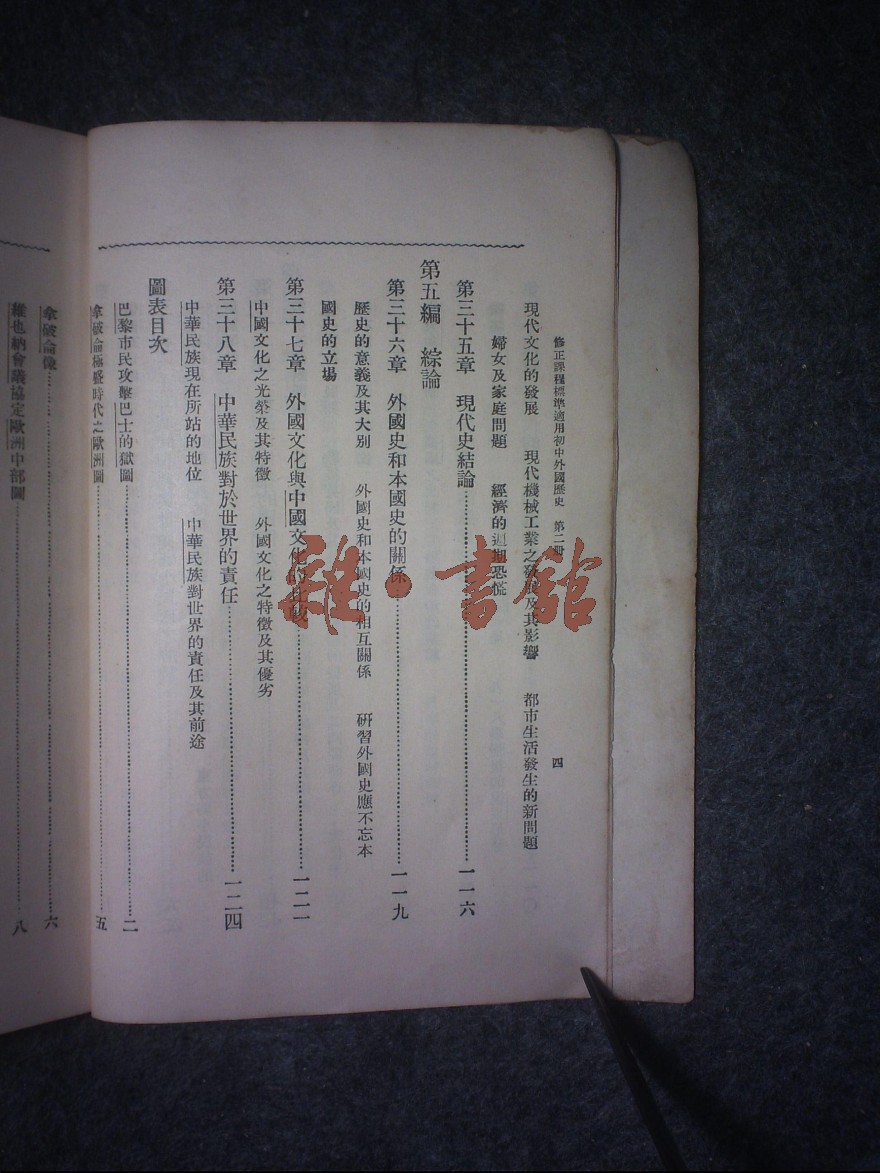 修正課程標準適用初中外國歷史　第二册　四
現代文化的發展　現代機械工業之發展及其影響　都市生活發生的新問題
婦女及家庭問題　經濟的週期恐慌
第三十五章　現代史結論…………一一六
第五編　綜論
第三十六章　外國史和本國史的關係…………一一九
歷史的意義及其大別　外國史和本國史的相互關係　硏習外國史應不忘本
國史的立場
第三十七章　外國文化與中國文化的比較…………一二一
中國文化之光榮及其特徵　外國文化之特徵及其優劣
第三十八章　中華民族對於世界的責任…………一二四
中華民族現在所站的地位　中華民族對世界的責任及其前途
圖表目次
巴黎市民攻擊巴士的獄圖…………二
拿破論極盛時代之歐洲圖…………五
拿破論像…………六
維也納會議協定歐洲中部圖…………八
雜·書館